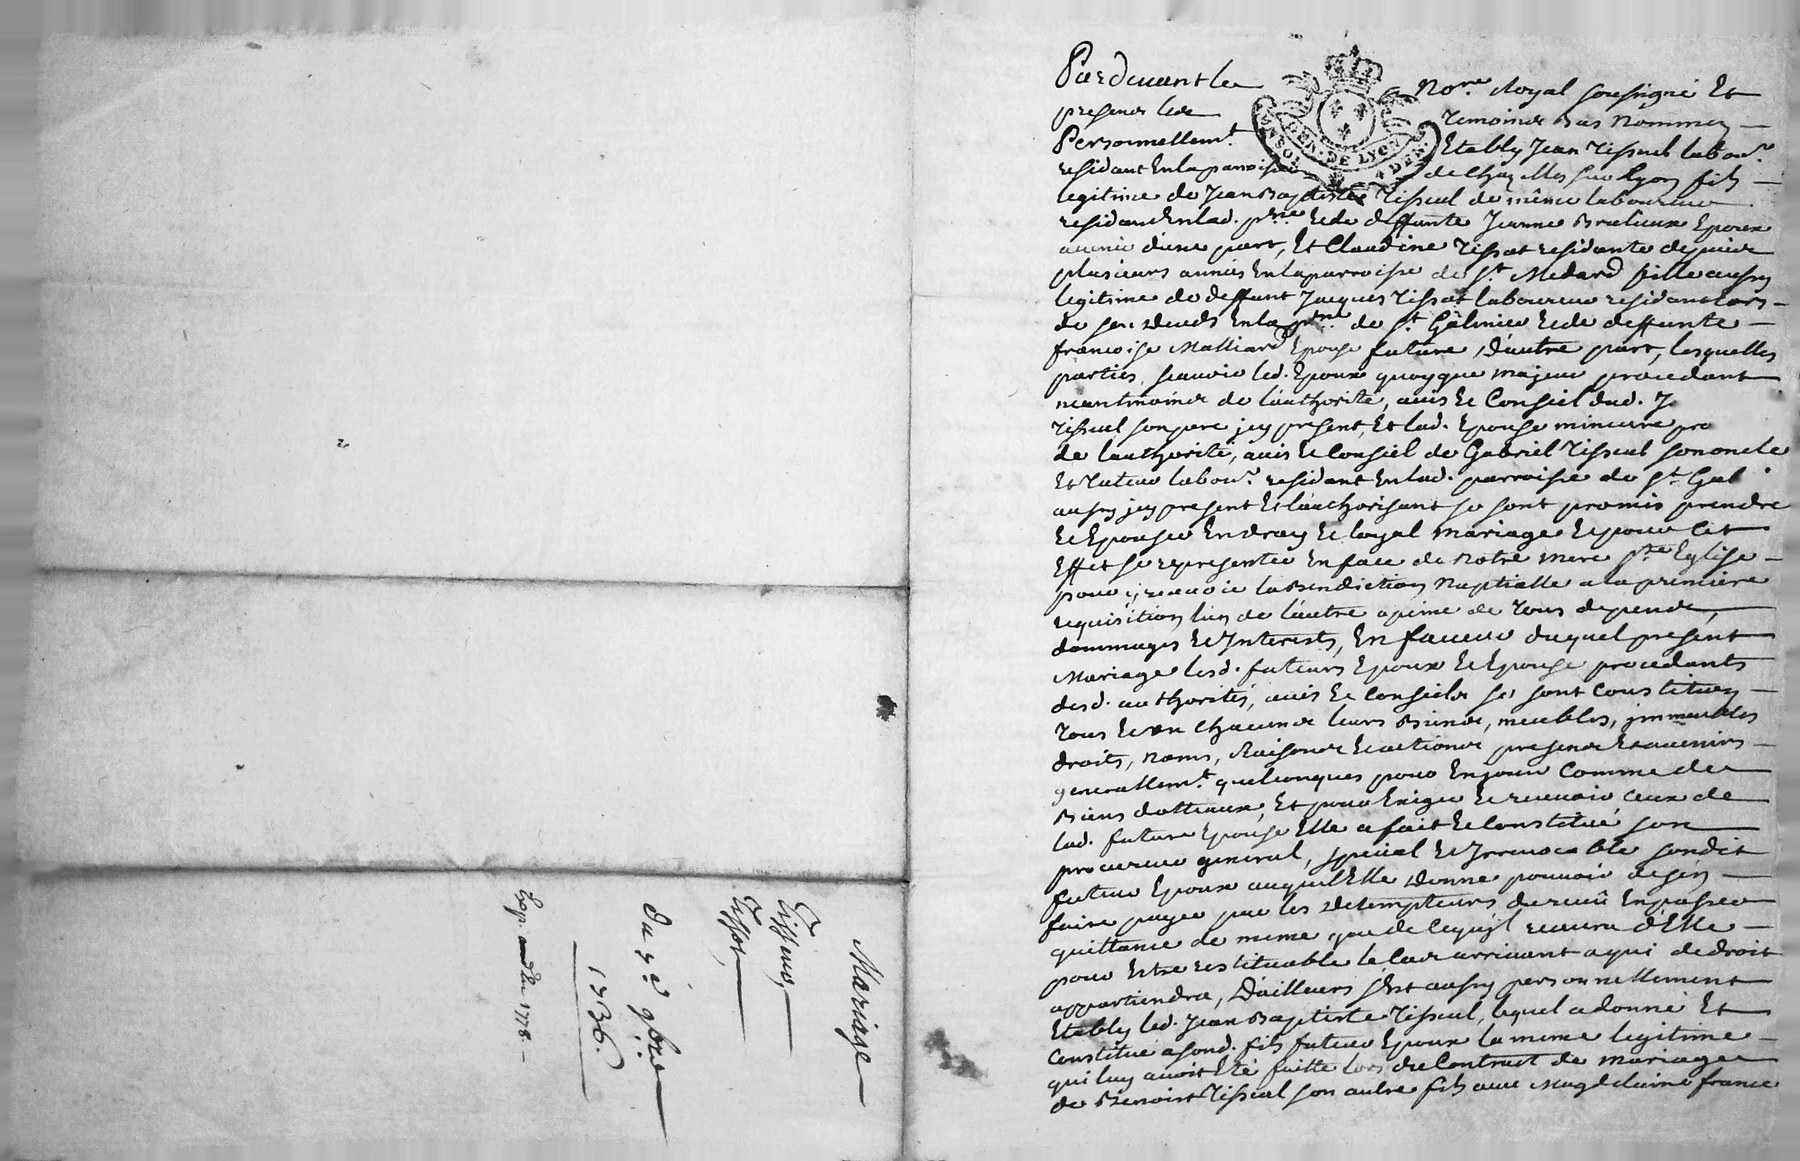 Mariage
Tisseur,
Tissot,
du 7e 9bre
1736.
Exp. 1778.
Pardevant le Nore. Royal soussigné Et
presens les temoins bas nommez
Personnellemt. Etably Jean Tisseul labour.
residant En la paroisse de Chazelles sur lyon fils
legitime de Jean Baptiste Tisseul de même laboureur
residant En lad. psse Et de deffunte Jeanne Epoux
avenir d'une part, Et Claudine Tissot residante depuis
plusieurs années En la parroisse de St. Medard fille aussy
legitime de deffunt Jacques Tissot laboureur residant lors
de son deceds En la de St. Galmier Et de deffunte
francoise Malliard Epouse future d'autre part, lesquelles
parties, scavoir led. Epoux quoyque majeur procedant
neantmoins de l'authorité, avis Et Conseil dud. T
Tisseul son pere jcy present, Et lad. Epouse mineure pro
de l'authorité, avis Et Conseil de Gabriel Tisseul son oncle
Et Tuteur labour. residant En lad. parroisse de St. Gal
aussy jcy present Et l'authorisant se sont promis prendre
Et Epouser En vray Et loyal mariage Et pour Cet
Effet se representer En face de Notre mere Ste Eglise
pour y recevoir la Benediction Nuptialle a la premiere
requisition l'un de l'autre a peine de tous depends,
dommages Et Interests, En faveur duquel present
Mariage lesd. futurs Epoux Et Epouse procedants
desd. authorités, avis Et Conseils se sont Constituez
tous Et un chacuns leurs Biens, meubles, jmmeubles
droits, noms, Raisons Et actions presens Et avenirs
generallemt. quelconques pour En jouir Comme de
Biens dottaux, Et pour Exiger Et recevoir Ceux de
lad. future Epouse Elle a fait Et Constitué son
procureur general, special Et Irrevocable sondit
futur Epoux auquel Elle Donne pouvoir de s'en
faire payer par les detempteurs du receû En passer
quittance de meme que de ce qu'jl recevra d'Elle
pour Estre restituable le Cas arrivant a qui de droit
appartiendra, D'ailleurs s'Est aussy personnellement
Etably led. Jean Baptiste Tisseul, lequel a donné Et
Constitué a sond. fils futur Epoux la meme legitime
qui luy avoit Eté faitte lors du Contract de mariage
de Benoist Tisseul son autre fils avec Magdelaine france
GEN. DE LYON